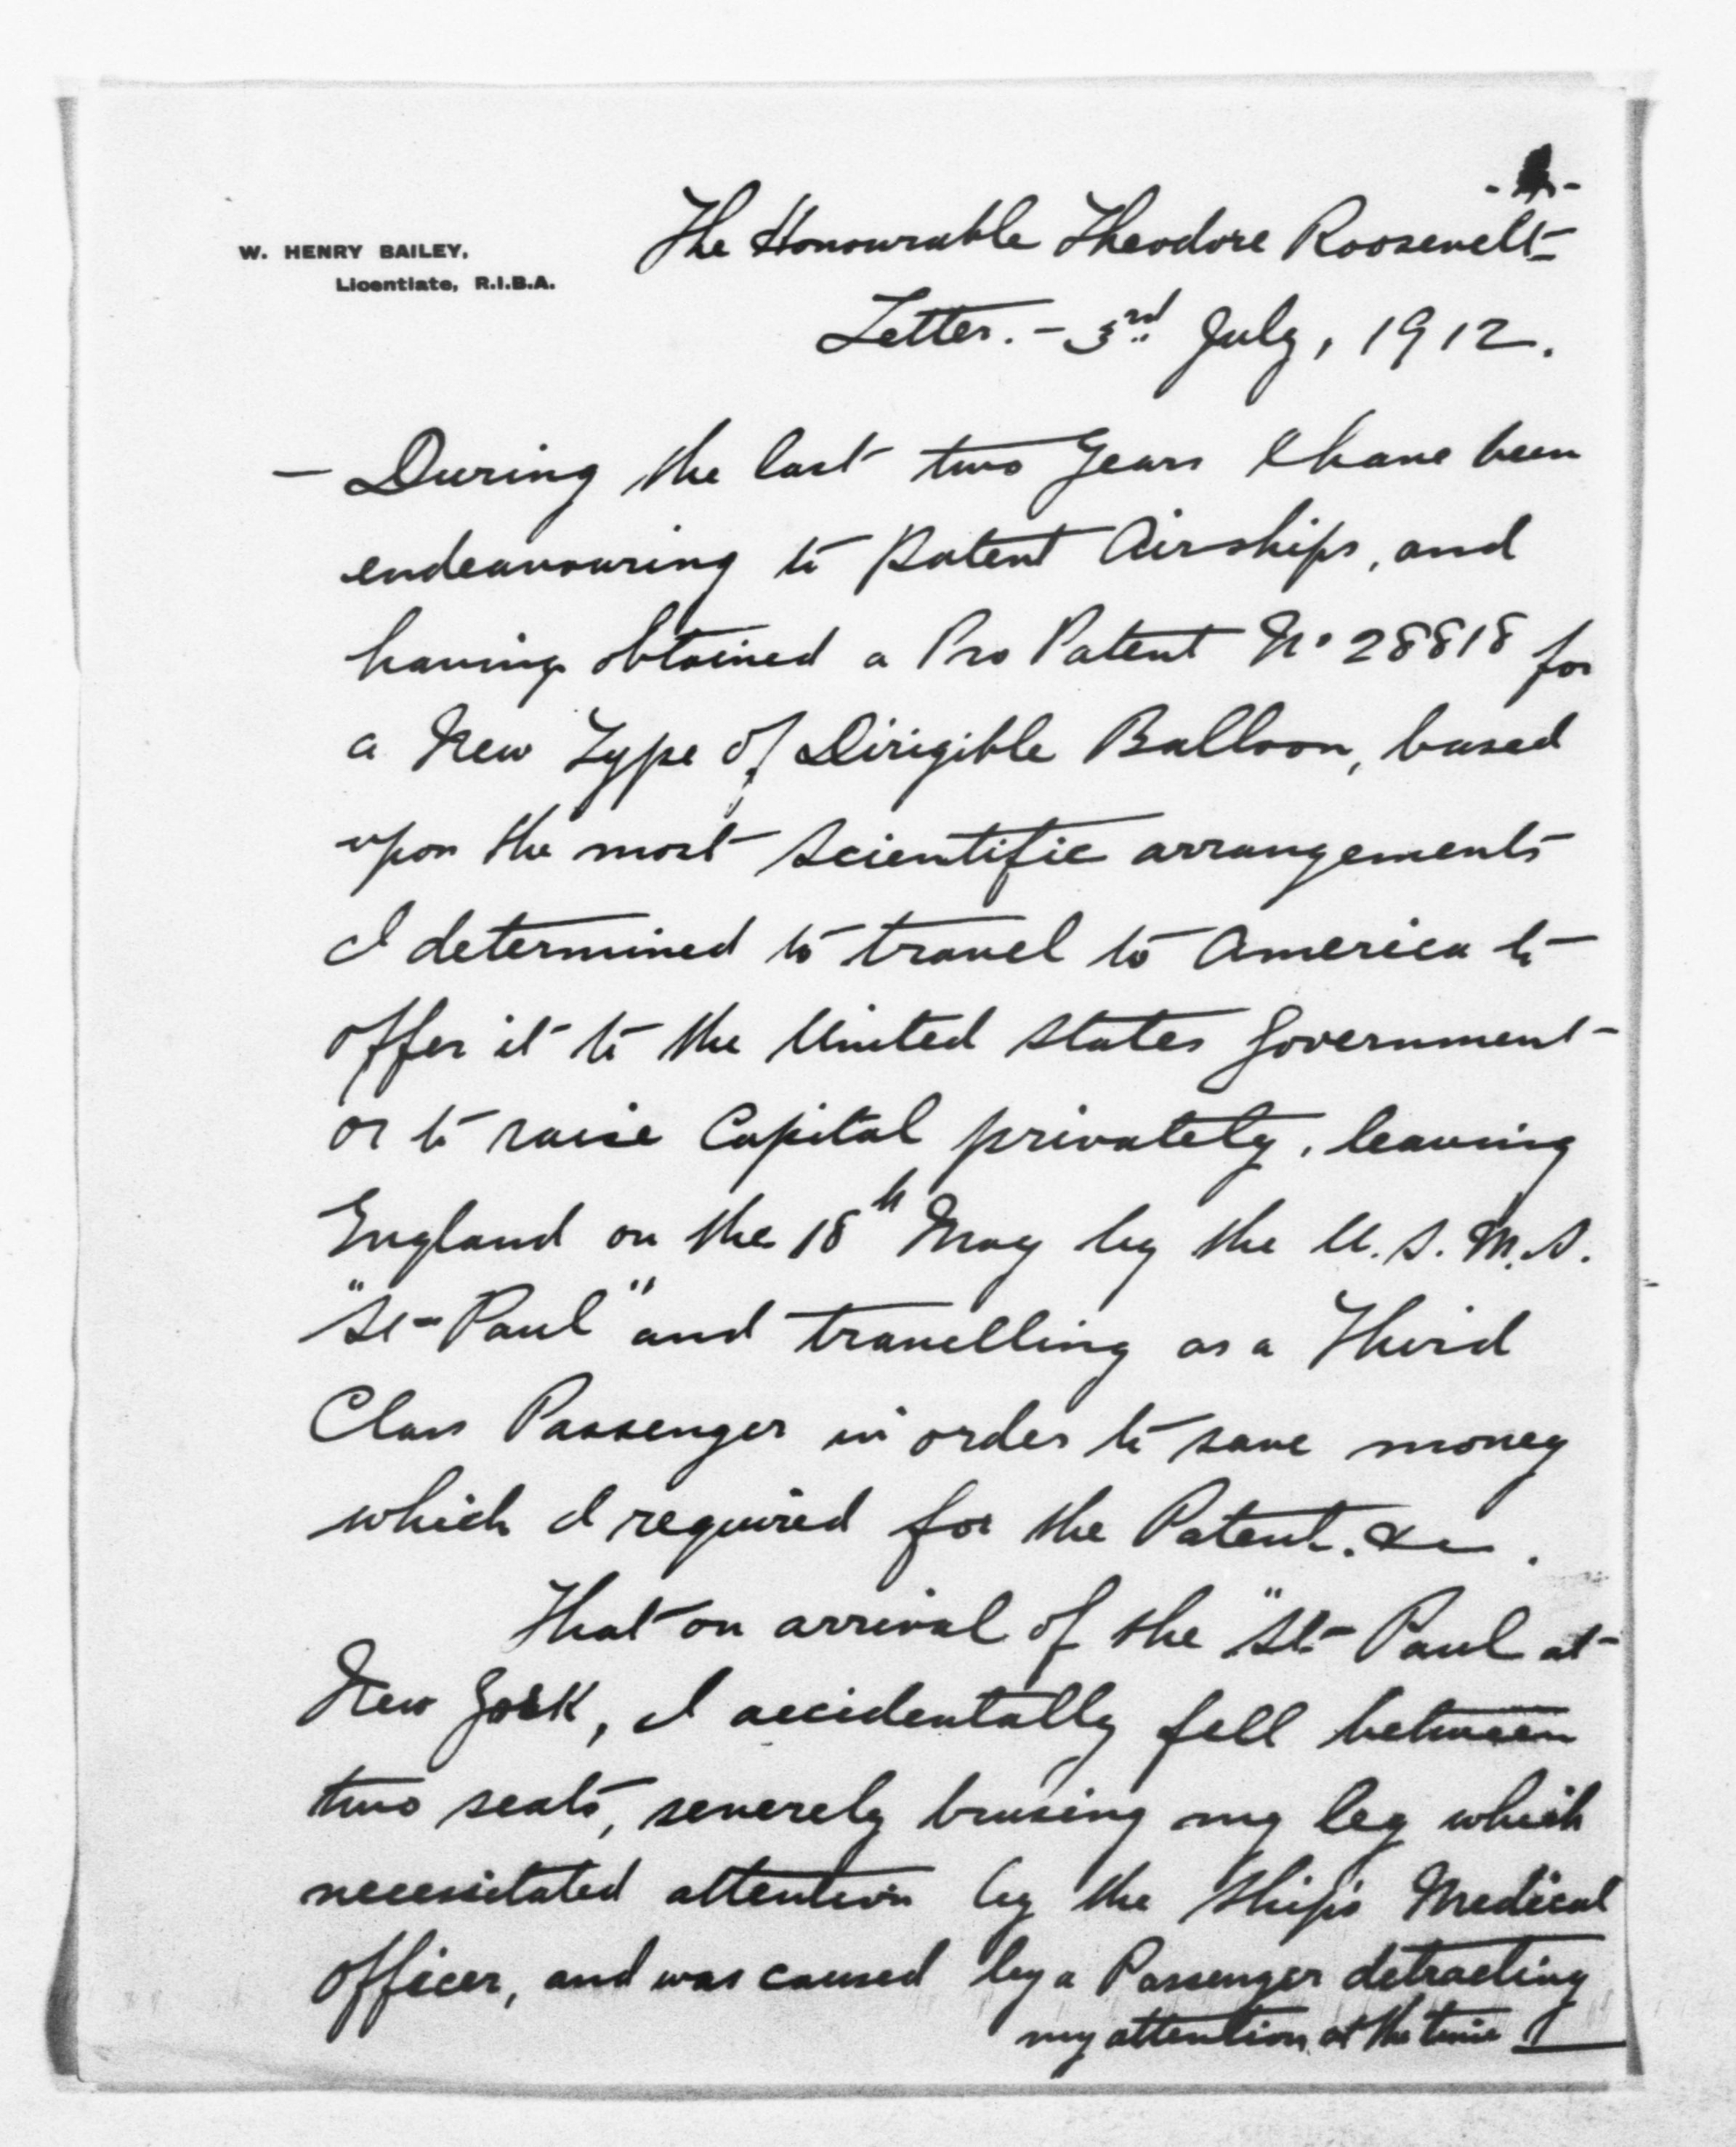 W. HENRY BAILEY,
Licentiate, R.I.B.A.
The Honourable Theodore Roosevelt
Letter. - 3rd July, 1912.
- During the last two Years I have been
endeavouring to Patent Airships, and
having obtained a Pro Patent No 28818 for
a New Type of Dirigible Balloon, based
upon the most Scientific arrangements
I determined to travel to America to
offer it to the United States Government
or to raise Capital privately, leaving
England on the 18th May by the U.S.M.S.
"St Paul" and travelling as a Third
Class Passenger in order to save money
which I required for the Patent. &c.
That on arrival of the "St Paul at
New York, I accidentally fell between
two seats, severely brusing my leg which
necessitated attention by the Ship's Medical
Officer, and was caused by a Passenger detracting
my attention at the time